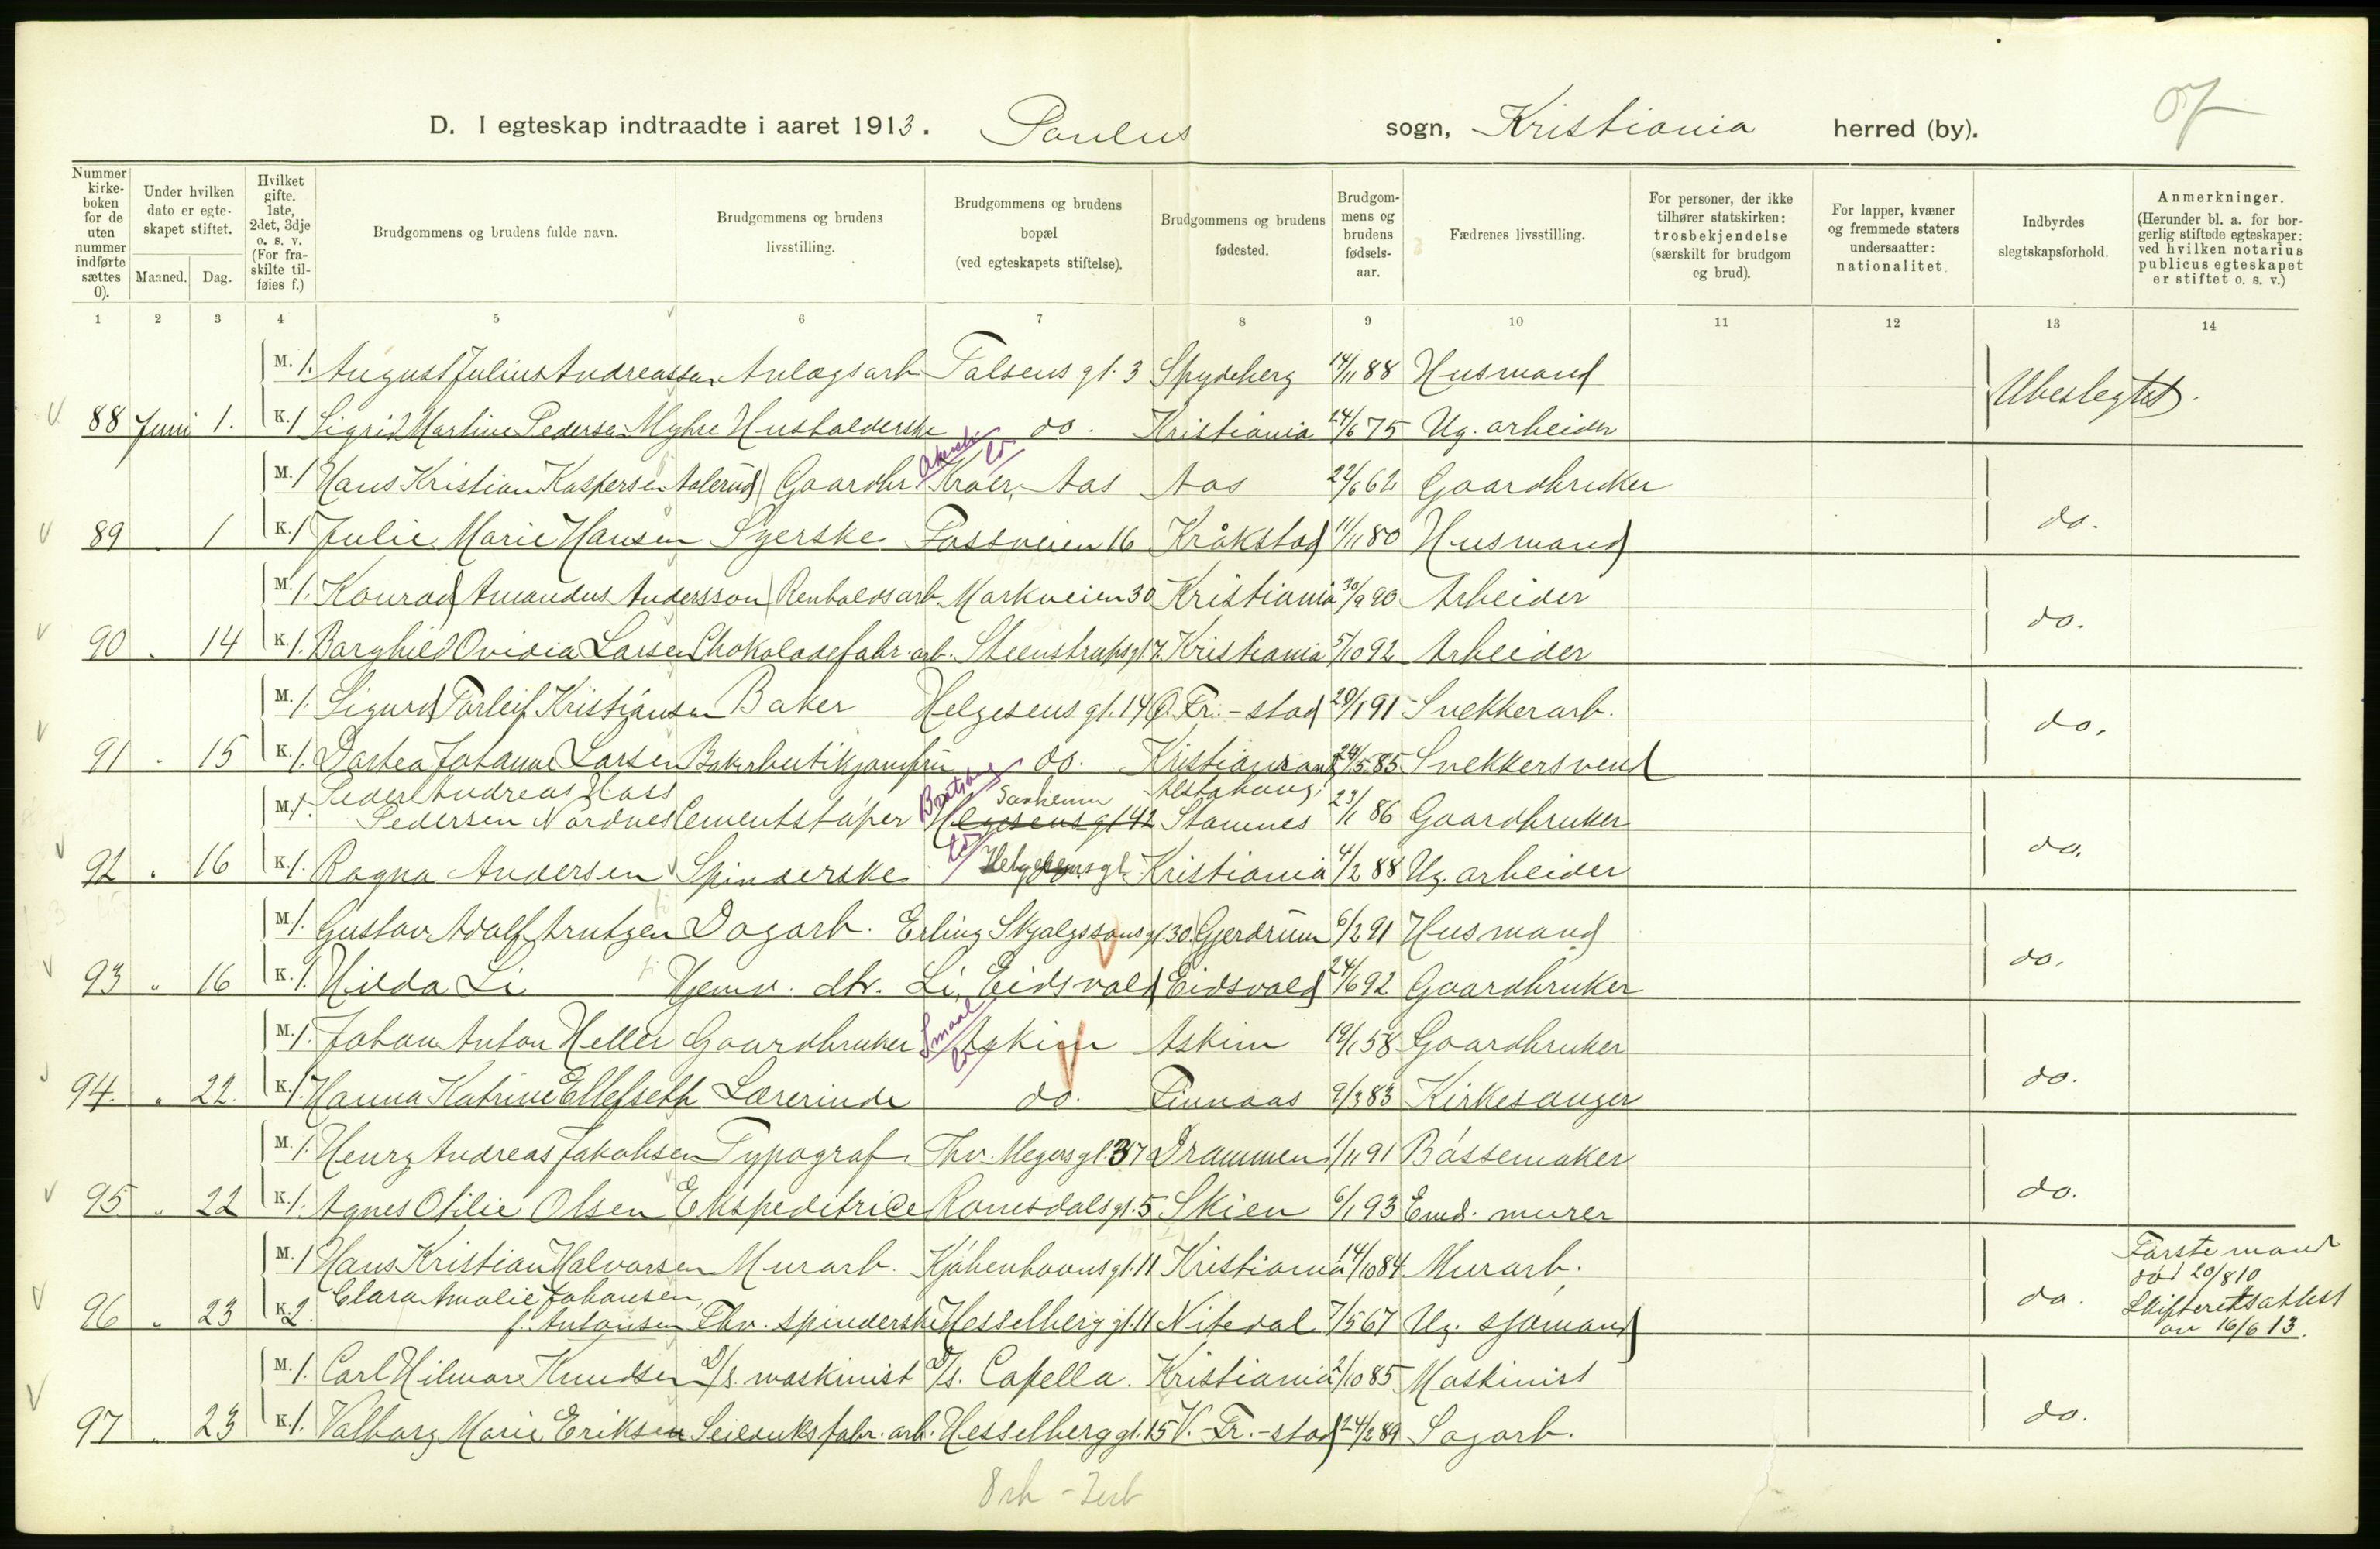 D. I egteskap indtraadte i aaret 1913. Paulus sogn, Kristiania herred (by).
Nummer kirkeboken for de uten nummer indførte sættes 0).
Under hvilken dato er egteskapet stiftet.
Maaned. Dag.
Hvilket gifte. 1ste, 2det, 3dje o. s. v. (For fraskilte tilføies f.)
Brudgommens og brudens fulde navn.
Brudgommens og brudens livsstilling.
Brudgommens og brudens bopæl (ved egteskapets stiftelse).
Brudgommens og brudens fødested.
Brudgommens og brudens fødselsaar.
Fædrenes livsstilling.
For personer, der ikke tilhører statskirken: trosbekjendelse (særskilt for brudgom og brud).
For lapper, kvæner og fremmede staters undersaatter: nationalitet.
Indbyrdes slegtskapsforhold.
Anmerkninger. (Herunder bl. a. for borgerlig stiftede egteskaper: ved hvilken notarius publicus egteskapet er stiftet o. s. v.)
1 2 3 4 5 6 7 8 9 10 11 12 13 14
M. 1. August Julius Andreassen Anlægsarb. Falsens gt. 3 Spydeberg 14/11 88 Husmand Ubeslegtet.
88 Juni 1. K. 1 Sigrid Martine Pedersen Myhre Husholderske do. Kristiania 24/6 75 Ug. arbeider
M. 1 Hans Kristian Kaspersen Aalerud Gaardbr. Kroer, Aas Aas 22/6 62 Gaardbruker do.
89 . 1 K. 1 Julie Marie Hansen Syerske Fossveien 16 Kråkstad 11/11 80 Husmand
M. 1. Konrad Amandus Andersson Renholdsarb. Markveien 30 Kristiania 30/9 90 Arbeider do.
90 . 14 K. 1. Borghild Ovidia Larsen Chokoladefabr. arb. Steenstrupsgt 7. Kristiania 5/10 92 Arbeider
M. 1. Sigurd Torleif Kristiansen Baker Helgesens gt. 14 Ø. Fr.-stad 20/1 91 Snekkerarb. do.
91 . 15 K. 1. Dortea Johanne Larsen Bakerbutikjomfru do. Kristiansand 24/5 85 Snekkersvend
M. 1. Peder Andreas Hass Pedersen Nordnes Cementstøper Bratsberg Saaheim Helgesens gt 42 Alstahoug, Stamnes 23/1 86 Gaardbruker do.
92 . 16 K. 1. Ragna Andersen Spinderske Helgesens gt. Kristiania 4/2 88 Ug. arbeider
M. 1. Gustav Adolf Arntzen Dagarb. Erling Skjalgssons gt 30. Gjerdrum 6/2 91 Husmand do.
93 " 16 K. 1. Hilda Li Hjemv. dtr. Li, Eidsvold Eidsvold 24/6 92 Gaardbruker
M. 1. Johan Anton Heller Gaardbruker Smaal Askim Askim 19/1 58 Gaardbruker do.
94. " 22. K. 1. Hanna Katrine Ellefseth Lærerinde do. Finnaas 9/3 83 Kirkesanger
M. 1. Henry Andreas Jakobsen Typograf Thv. Meyers gt. 37 Drammen 1/11 91 Bøssemaker do.
95 . 22 K. 1. Agnes Otilie Olsen Ekspeditrice Romsdals gt. 5 Skien 6/1 93 Emd. murer
M. 1 Hans Kristian Halvorsen Murarb. Kjøbenhavns gt. 11 Kristiania 14/10 84 Murarb. do.
96 " 23 K. 2. Clara Amalie Johansen, f. Antonsen Fbr. spinderske Hesselberg gt. 11 Nitedal 7/5 67 Ug. sjømand
Første mand død 20/8 10 Skifteretsattest av 16/6 13.
M. 1. Carl Hilmar Knudsen D/s. maskinist D/s. Capella. Kristiania 2/10 85 Maskinist do.
97 . 23 K. 1. Valborg Marie Eriksen Seilduksfabr. arb. Hesselberg gt. 15 V. Fr.-stad 24/2 89 Sagarb.